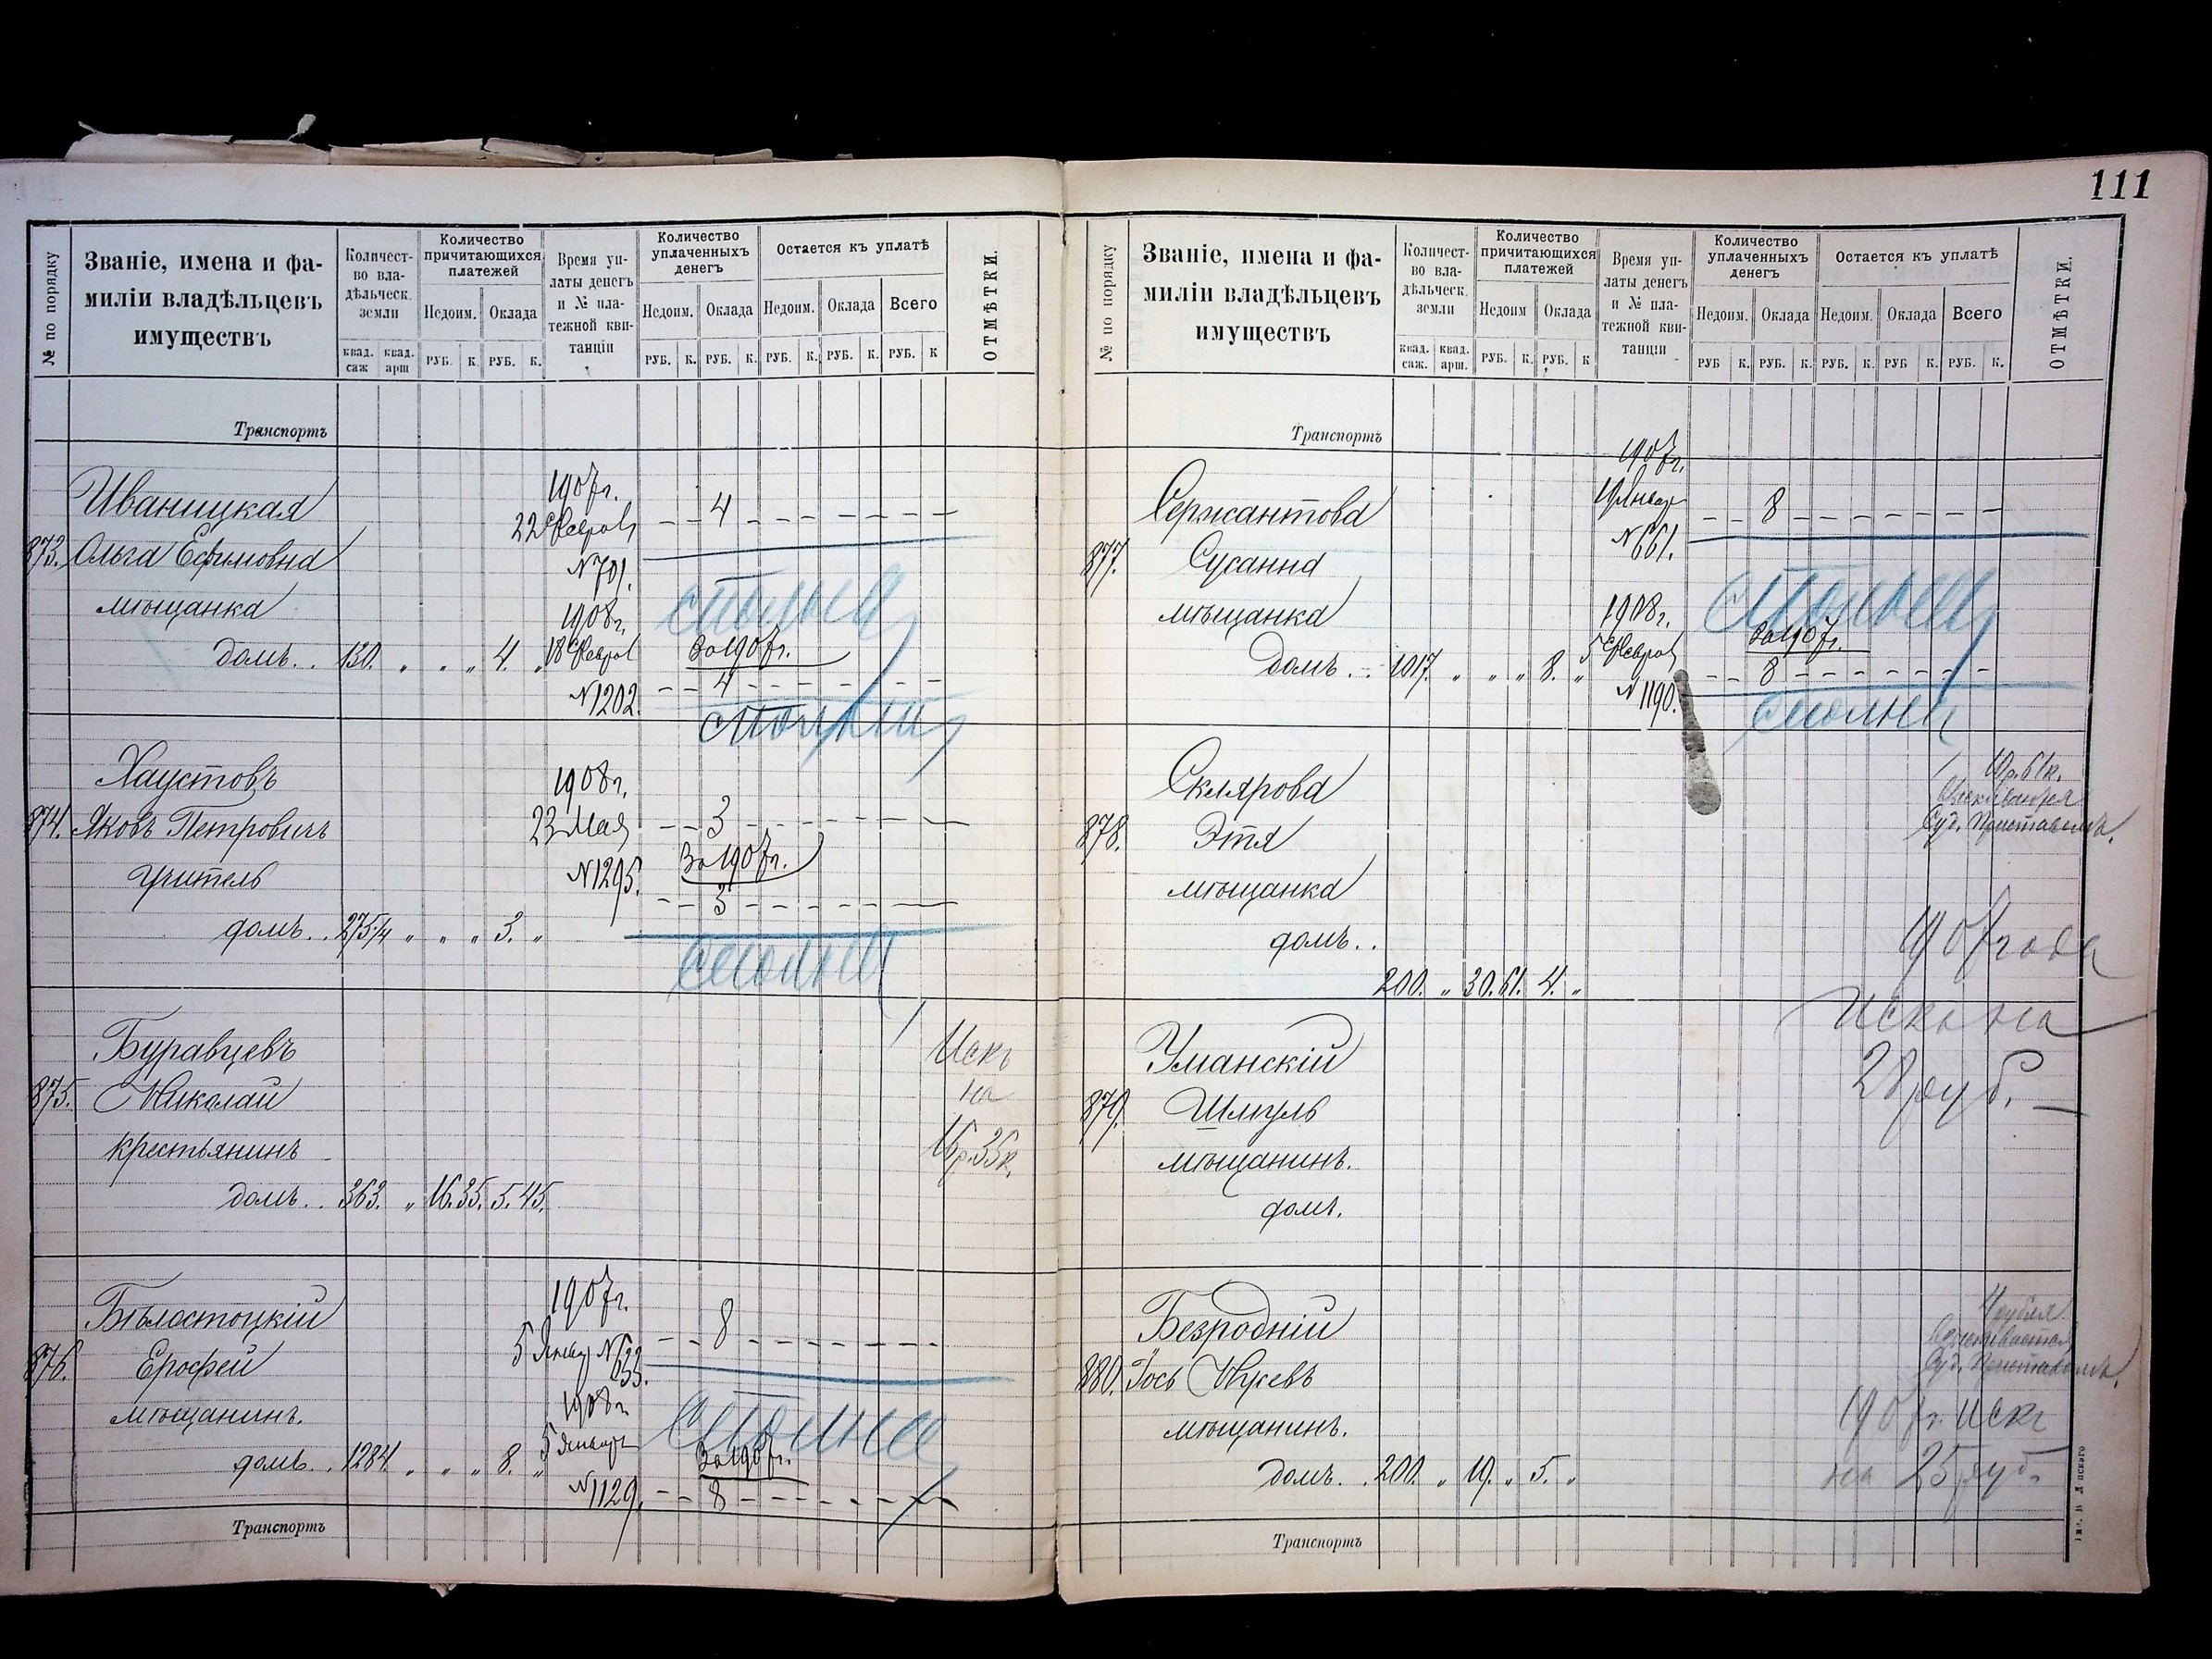 111
№ по порядку
Званіе, имена и фа-
миліи владѣльцевъ
имуществъ
Количест-
во вла-
дѣльческ.
земли
квад. саж
квад. арш
Количество
причитающихся
платежей
Недоим.
Оклада
РУБ. К. РУБ. К.
Время уп-
латы денегъ
и № пла-
тежной кви-
танціи
Количество
уплаченныхъ
денегъ
Недоим. Оклада
РУБ. К. РУБ. К.
Остается къ уплатѣ
Недоим. Оклада Всего
РУБ. К. РУБ. К. РУБ. К
ОТМѢТКИ.
Транспортъ
Иваницкая
873. Ольга Ефимовна
мѣщанка
домъ.. 130. „ „ „ 4. „
1907г.
22 Феврал
N 701.
4
1908г.
18 Феврал
N 1202.
За 1907г.
4
Хаустовъ
874. Яковъ Петровичъ
учитель
домъ.. 275¼ „ „ „ 3. „
1908г.
23 Мая
N 1295.
3
За 1907г.
3
Буравцевъ
875. Николай
крестьянинъ
домъ.. 363. „ 16.35. 5.45.
Искъ
на
16р.35к.
Бѣлостоцкій
876. Ерофей
мѣщанинъ.
домъ.. 1284. „ „ „ 8. „
1907г.
8
1908г.
5 Январ
N 1129.
За 1907г.
8
Транспортъ
№ по порядку
Званіе, имена и фа-
миліи владѣльцевъ
имуществъ
Количест-
во вла-
дѣльческ.
земли
квад. саж.
квад. арш.
Количество
причитающихся
платежей
Недоим
Оклада
РУБ. К. РУБ. К
Время уп-
латы денегъ
и № пла-
тежной кви-
танціи
Количество
уплаченныхъ
денегъ
Недоим. Оклада
РУБ К. РУБ. К.
Остается къ уплатѣ
Недоим. Оклада Всего
РУБ. К. РУБ К. РУБ. К.
ОТМѢТКИ.
Транспортъ
Сержантова
877. Сусанна
мѣщанка
домъ.. 1017. „ „ „ 8. „
1907г.
Январ
N 661.
8
1908г.
5 Феврал
N 1190.
За 1907г.
8
Склярова
878. Этя
мѣщанка
домъ..
200. „ 30.61. 4. „
Суд. Приставомъ.
1907 года
Искъ на
28 руб.
Уманскій
879. Шмуль
мѣщанинъ.
домъ.
Безродній
880. Іось
мѣщанинъ.
домъ.. 200. „ 19. „ 5. „
4 рубля
Суд. Приставомъ.
1907г. искъ
на 25 руб.
Транспортъ